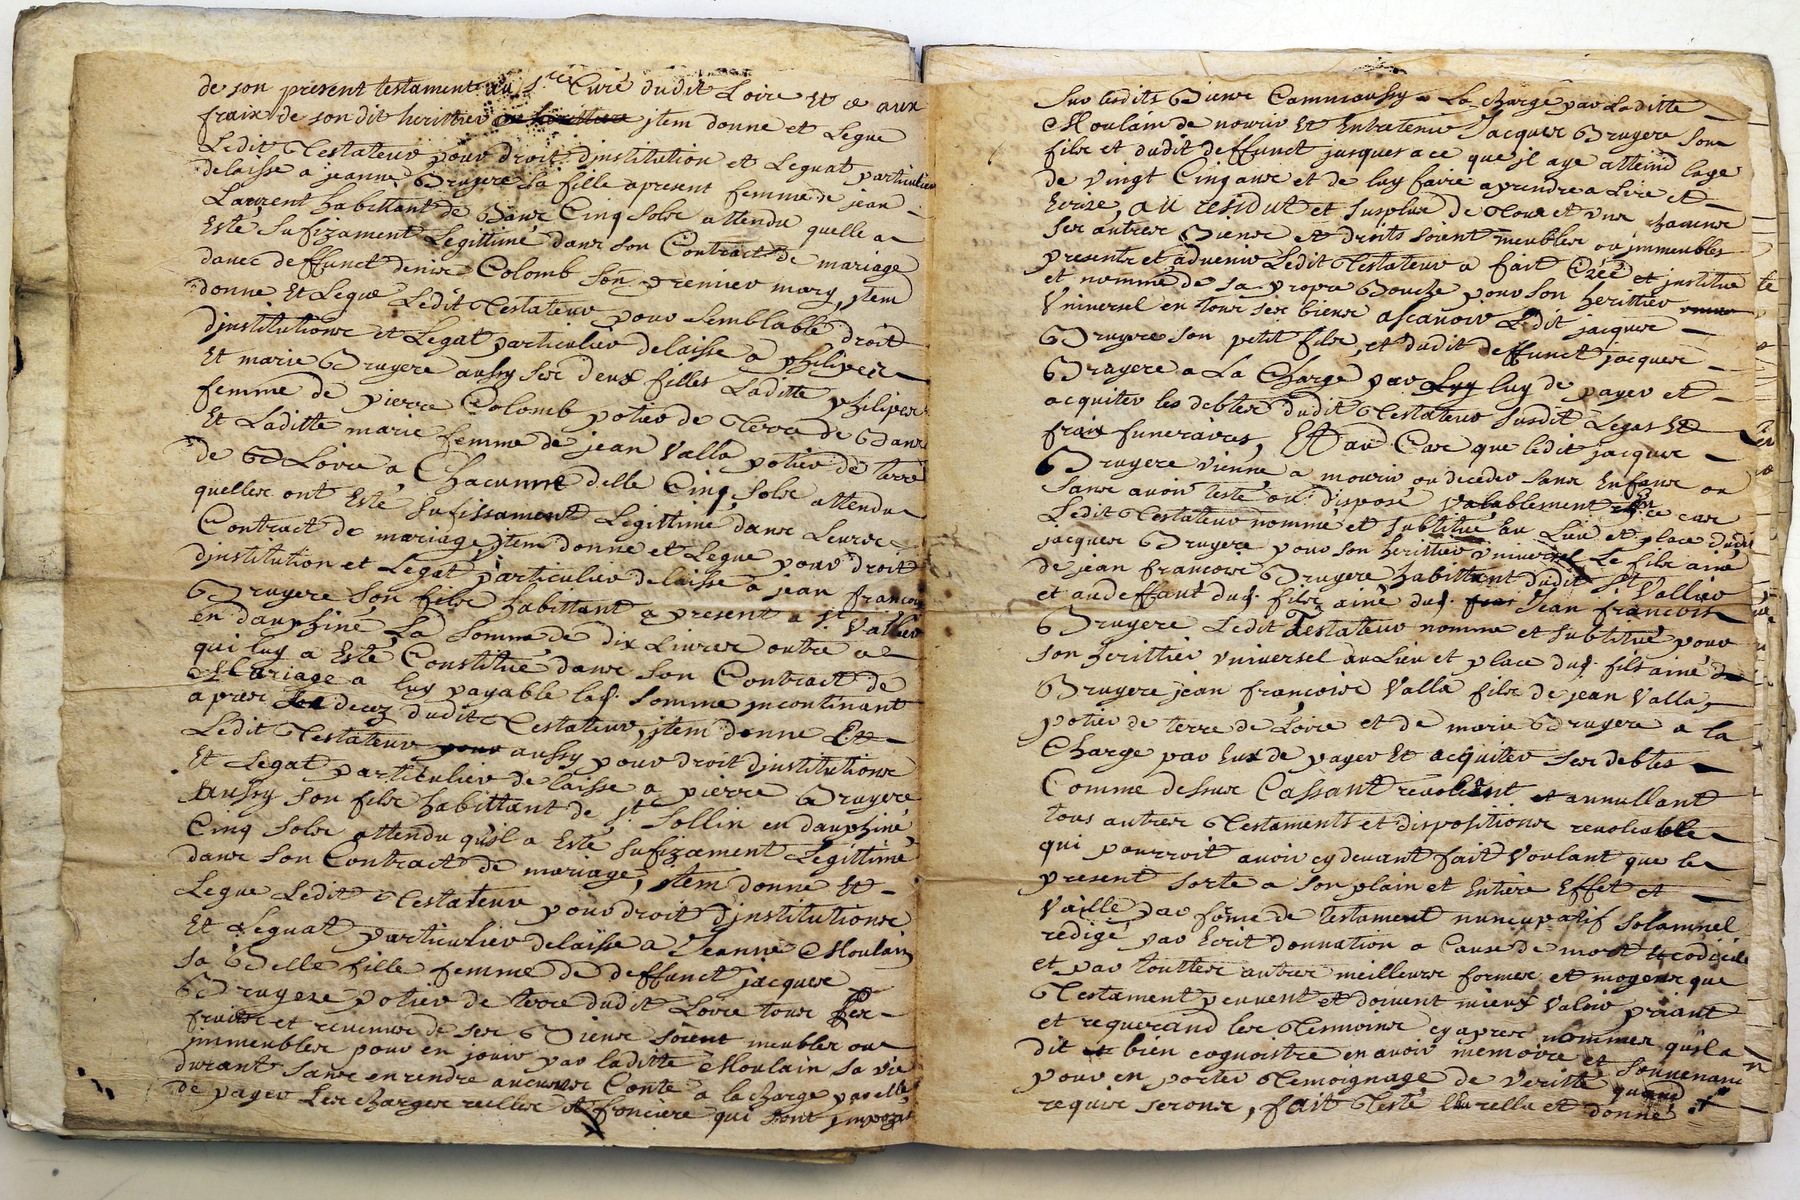 de son present testament au Sr Curé dudit Loire Et ce aux
fraix de son dit heritier jtem donne et Legue
Ledit Testateur pour droit dinstitution et Leguat particulier
delaisse a jeanne Bruyere sa fille apresent femme de jean
Laurent habittant de Bans Cinq Sols attendu quelle a
Esté Sufizament Legittimé dans son Contract de mariage
davec deffunct denis Colomb son premier mary, jtem
donne Et Legue Ledit Testateur pour Semblable droit
djnstitutions et Legat particulier delaisse a philipes
Et marie Bruyere aussy ses deux filles Laditte philipes
femme de pierre Colomb potier de Terre de Bans
Et Laditte marie femme de jean Valla potier de terre
de Loire a Chacunne delle Cinq Sols attendu
quelles ont Esté Sufissament Legittimé dans Leurs
Contract de mariage, jtem donne et Legue pour droit
djnstitution et Legat particulier delaisse a jean francois
Bruyere Son fils habittant a present a St Vallier
en dauphiné La Somme de dix Livres outre ce
qui luy a Esté Constitué dans son Contract de
Mariage a luy payable lad. somme jncontinant
apres decez dudit Testateur, jtem donne Et
Ledit Testateur aussy pour droit djnstitutions
Et Legat particulier delaisse a pierre Bruyere
Aussy Son fils habittant de St Sollin en dauphiné
Cinq Sols attendu qujl a Esté Sufizament Legittimé
dans Son Contract de mariage, jtem donne Et
Legue Ledit Testateur pour droit djnstitutions
Et Leguat particulier delaisse a Jeanne Moulain
sa Belle fille femme de deffunct jacques
Bruyere potier de terre dudit Loire tous Les
fruits et revenus de ses Biens soient meubles ou
jmmeubles pour en jouir par laditte Moulain Sa vie
durant Sans en rendre aucuns Conte a la charge par elle
de payer Les charges reelles et fonciere qui sont jmposés
Sur lesdits Biens Comme aussy a La charge par Laditte
Moulain de nourir Et Entretenir Jacques Bruyere Son
fils et dudit deffunct jusques a ce que jl aye atteind lage
de vingt Cinq ans et de luy faire aprendre a Lire et
Ecrire, au residut et surplus de Tous et uns chacuns
Ses autres Biens et droits soient meubles ou jmmeubles
presents et advenir Ledit Testateur a fait Créé et jnstitué
et nommé de sa propre Bouche pour Son herittier
Vniversel en tous ses biens ascauoir Ledit jacques
Bruyere son petit fils, et dudit deffunct jacques
Brayere a La Charge par luy de payer et
acquiter les debtes dudit Testateur susdit Legas Et
frais funeraires, Et au Cas que ledit jacques
Bruyere vienne a mourir ou deceder sans Enfans ou
sans auoir testé ou disposé valablement En ce cas
Ledit Testateur nomme et subtitué au Lieu et place dudit
jacques Bruyere pour son herittier vniversel Le fils ainé
de jean francois Bruyere habittant dudit St Vallier
et au deffaut dud. fils ainé dud. Jean francois
Bruyere Ledit Testateur nomme et subtitué pour
son herittier vniversel au Lieu et place dud. fils ainé de
Bruyere jean francois Valla fils de jean Valla,
potier de terre de Loire et de marie Bruyere a la
Charge par Eux de payer Et acquiter ses debtes
Comme dessus Cassant revoCant et annullant
tous autres Testaments et dispositions
qui pourroit auoir cy devant fait Voulant que le
present sorte a Son plain et Entiere Effet et
Vaille par forme de testament nuncupatif solamnel
redigé par Ecrit donnation a Cause de mort
et par touttes autres meilleurs formes et moyens que
Testament peuvent et doivent mieux Valoir priant
et requerand les Temoins cy apres nommes qujl a
dit bien cognoistre en auoir memoire et souvenance
pour en porter Temoignage de Veritté quand
requis seront, fait Testé et donné